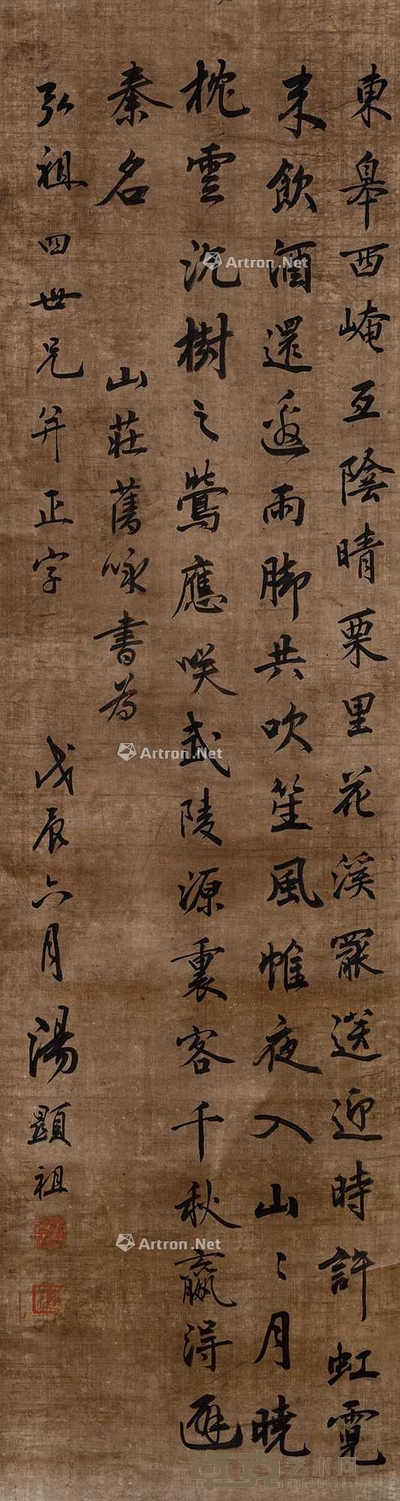 東皋西崦互陰晴栗里花溪罷送迎時許虹霓
來飲酒還邀雨脚共吹笙風帷夜入山〻月曉
枕雲沉樹之鶯應咲武陵源裏客千秋贏得避
秦名
山莊舊咏書為
弘祖四世兄并正字
戊辰六月湯顯祖
Artron.Net
Artron.Net
Artron.Net